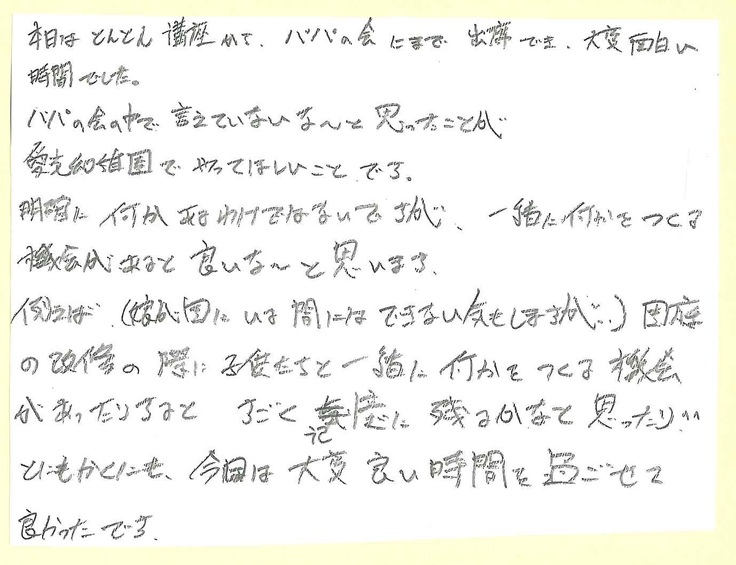 本日は とんとん 講座からで、パパの会にまで出席でき、大変面白い
時間でした。
パパの会の中で言えていないな〜と思ったことが
愛光幼稚園でやってほしいことです。
明確に何かあるわけではないですが、一緒に何かをつくる
機会があると良いな〜と思います。
例えば、(娘が園にいる間にはできない気もしますが…)園庭
の改修の際に子供たちと一緒に何かをつくる機会
があったりすると すごく記憶に残るかなと思ったり…
とにもかくにも、今回は大変良い時間を過ごせて
良かったです。